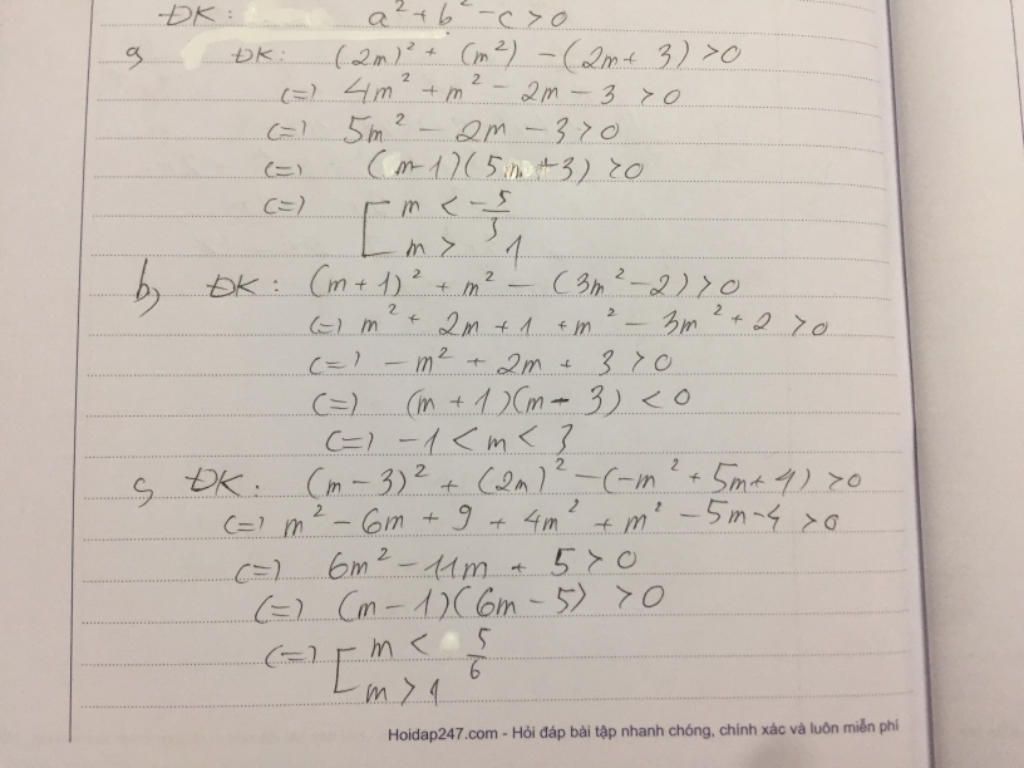 ĐK: a² + b² - c > 0
a, ĐK: (2m)² + (m²) - (2m + 3) > 0
(=) 4m² + m² - 2m - 3 > 0
(=) 5m² - 2m - 3 > 0
(=) (m-1)(5m+3) > 0
(=) [ m < -5/3
m > 1
b, ĐK: (m + 1)² + m² - (3m² - 2) > 0
(=) m² + 2m + 1 + m² - 3m² + 2 > 0
(=) -m² + 2m + 3 > 0
(=) (m + 1)(m - 3) < 0
(=) -1 < m < 3
c, ĐK: (m - 3)² + (2m)² - (-m² + 5m + 4) > 0
(=) m² - 6m + 9 + 4m² + m² - 5m - 4 > 0
(=) 6m² - 11m + 5 > 0
(=) (m - 1)(6m - 5) > 0
(=) [ m < 5/6
m > 1
Hoidap247.com - Hỏi đáp bài tập nhanh chóng, chính xác và luôn miễn phí